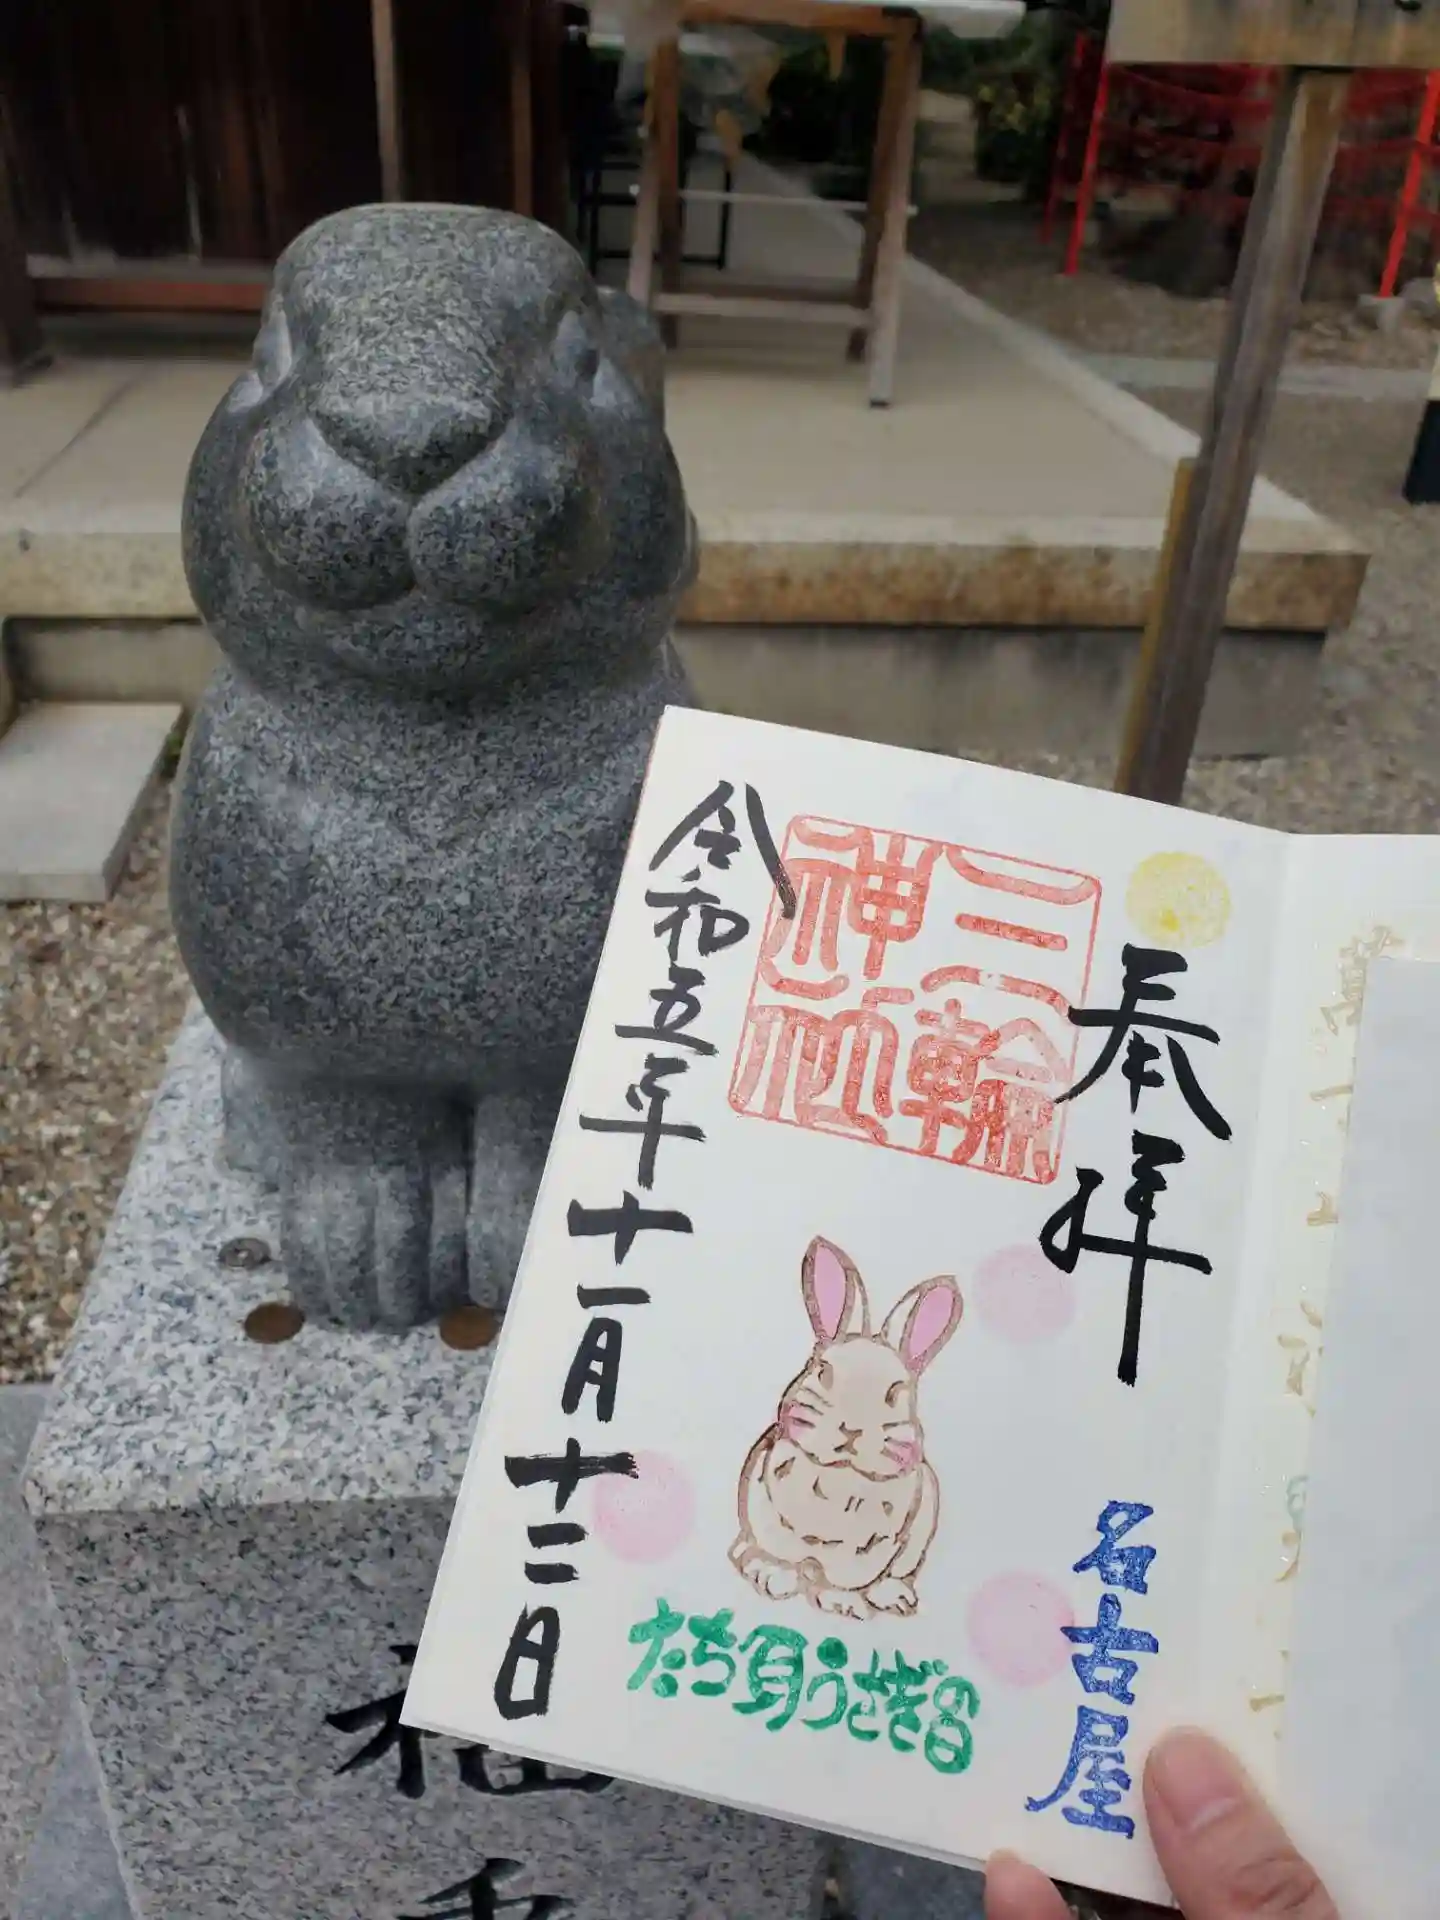 奉拝
三輪
神社
令和五年十一月十二日
名古屋
たち耳うさぎの日
福